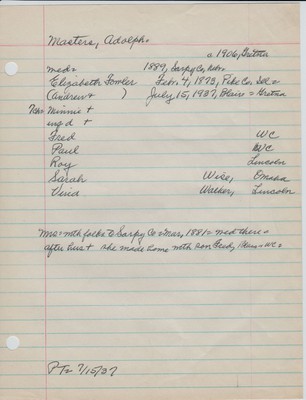 Masters, Adolph.
a 1906, Gretna
med= 1889, Sarpy Co, Neb.
Elizabeth Fowler Febr. 4, 1873, Pike Co. Ill =
Andrew + ) July 15, 1937, Blair = Gretna
Minnie +
ing d +
Fred WC
Paul WC
Roy Lincoln
Sarah Wike, Omaha
Walker, Lincoln
Mrs = with folks to Sarpy Co = Mar, 1881 = med there =
after + she made home with son Fred, = WC =
PT = 7/15/37